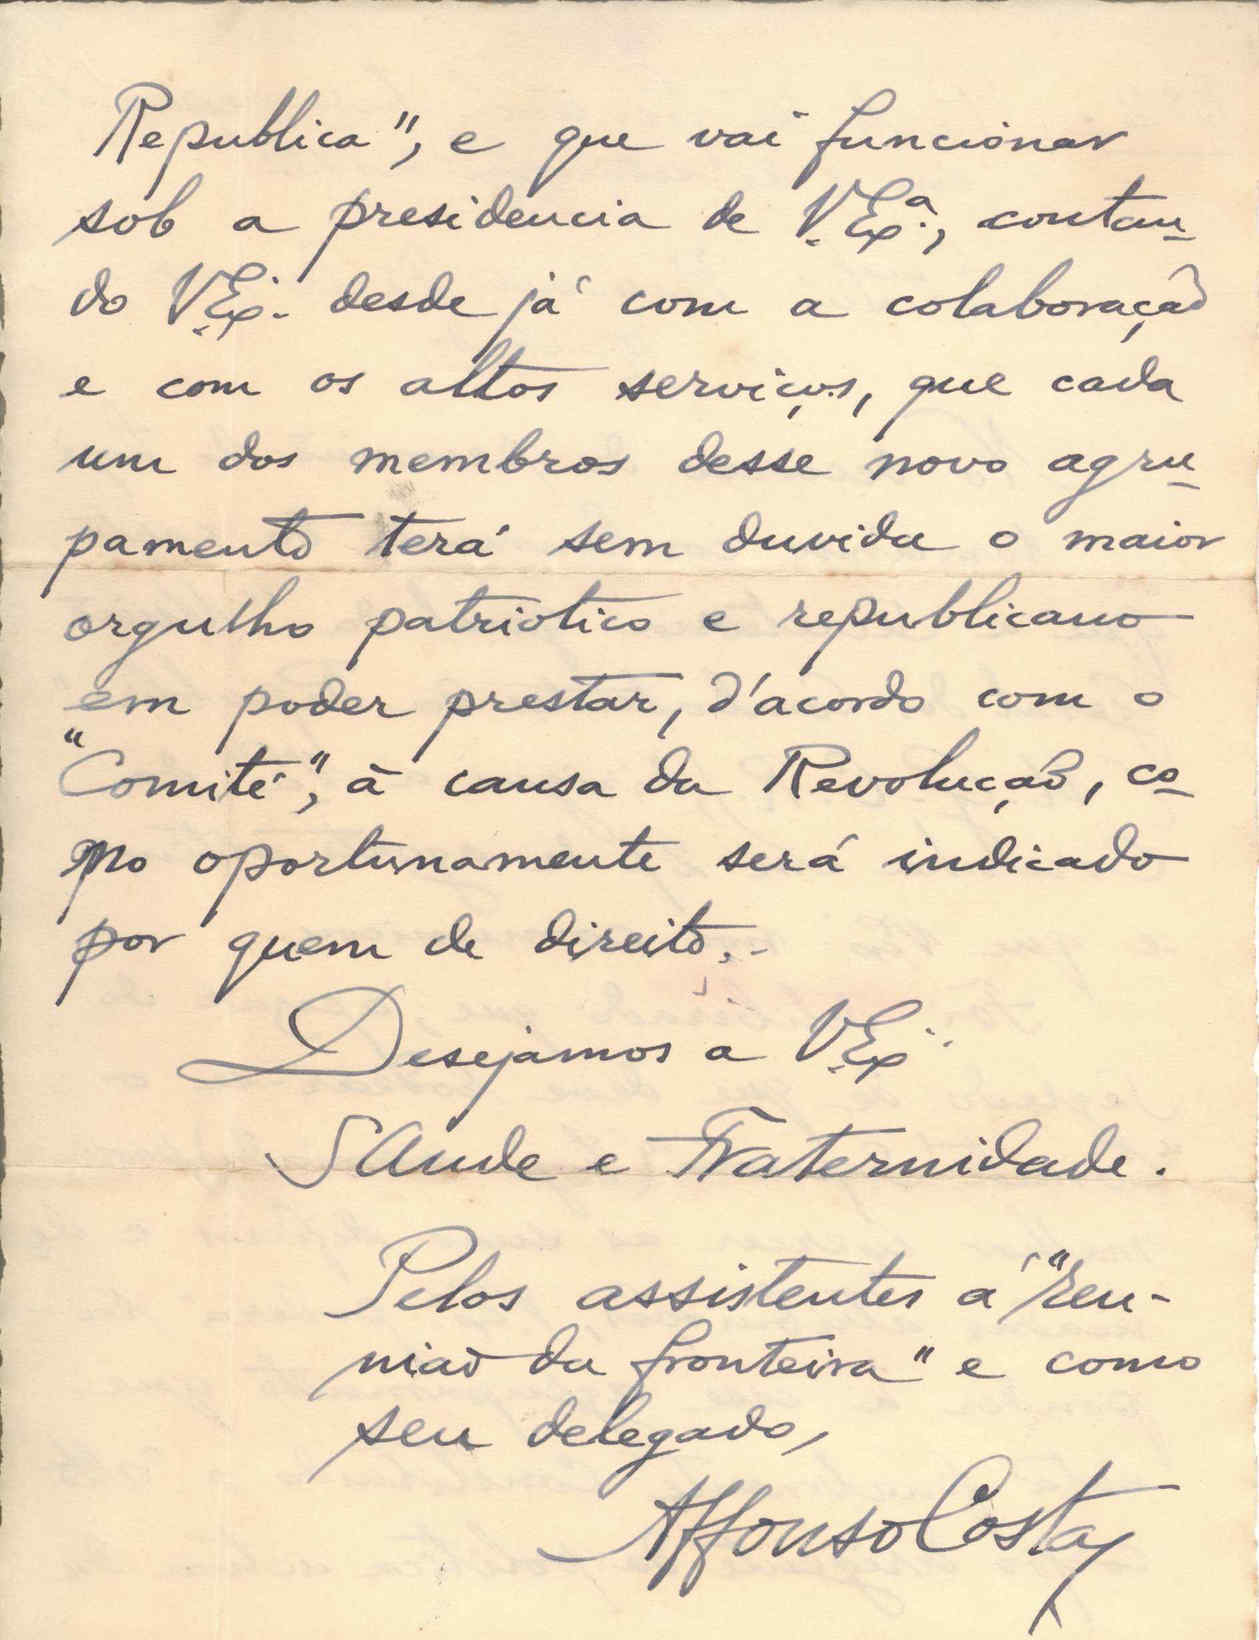 Republica", e que vai funcionar
sob a presidencia de V. Ex.ª, contan-
do V. Ex. desde já com a colaboração
e com os altos serviços, que cada
um dos membros desse novo agru-
pamento terá sem duvida o maior
orgulho patriotico e republicano
em poder prestar, d'acordo com o
"Comité", à causa da Revolução, co-
mo oportunamente será indicado
por quem de direito.-
Desejamos a V. Ex.
Saude e Fraternidade.
Pelos assistentes á "reu-
nião da fronteira" e como
seu delegado,
Affonso Costa